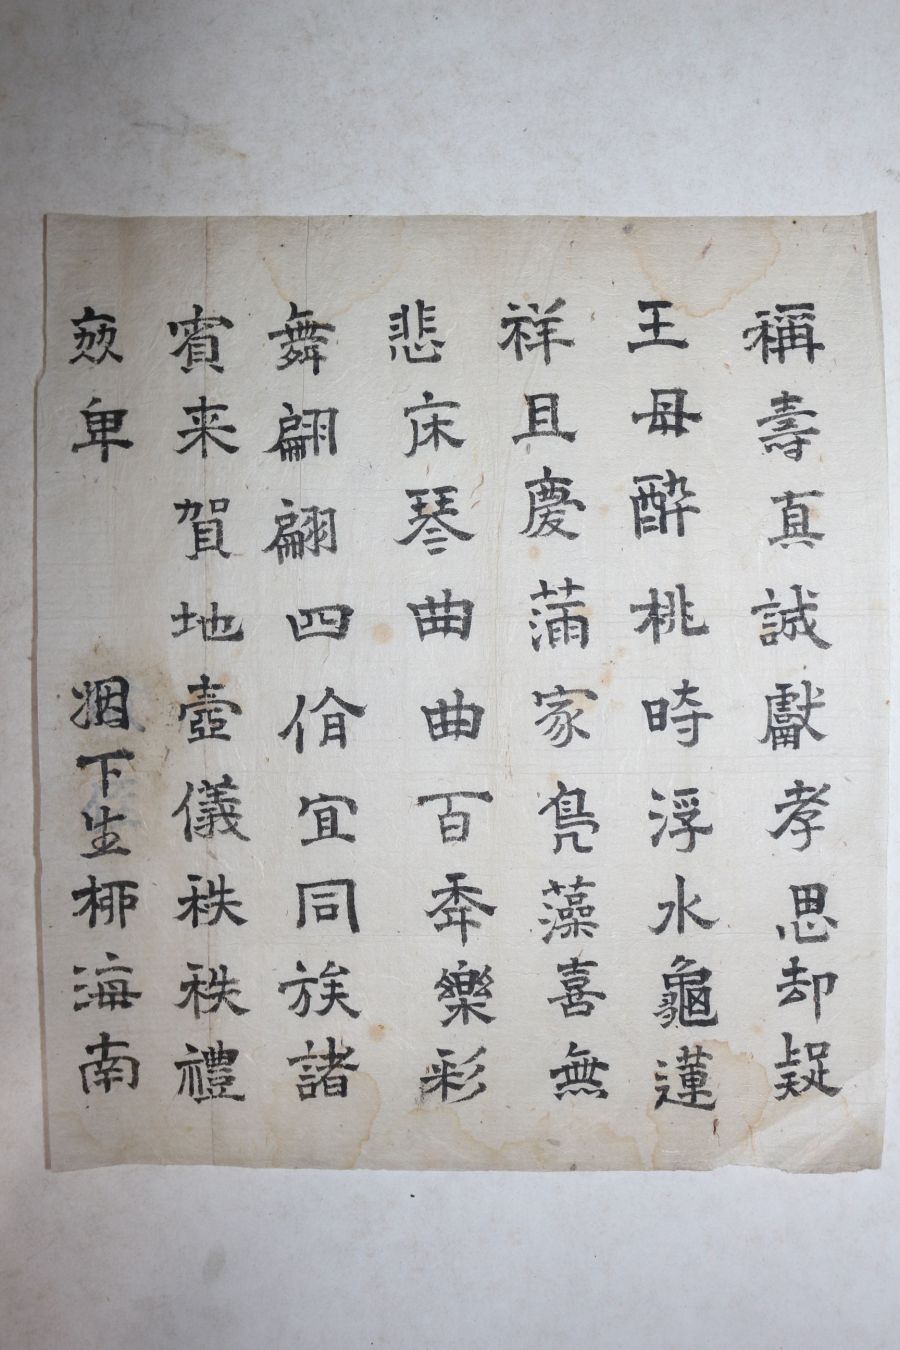 稱壽真誠獻孝思却疑
王母醉桃時浮水龜蓮
祥且慶滿家鳧藻喜無
悲床琴曲曲百年樂彩
舞翩翩四佾宜同族諸
賓来賀地壺儀秩秩禮
煥卑 烟下生柳海南